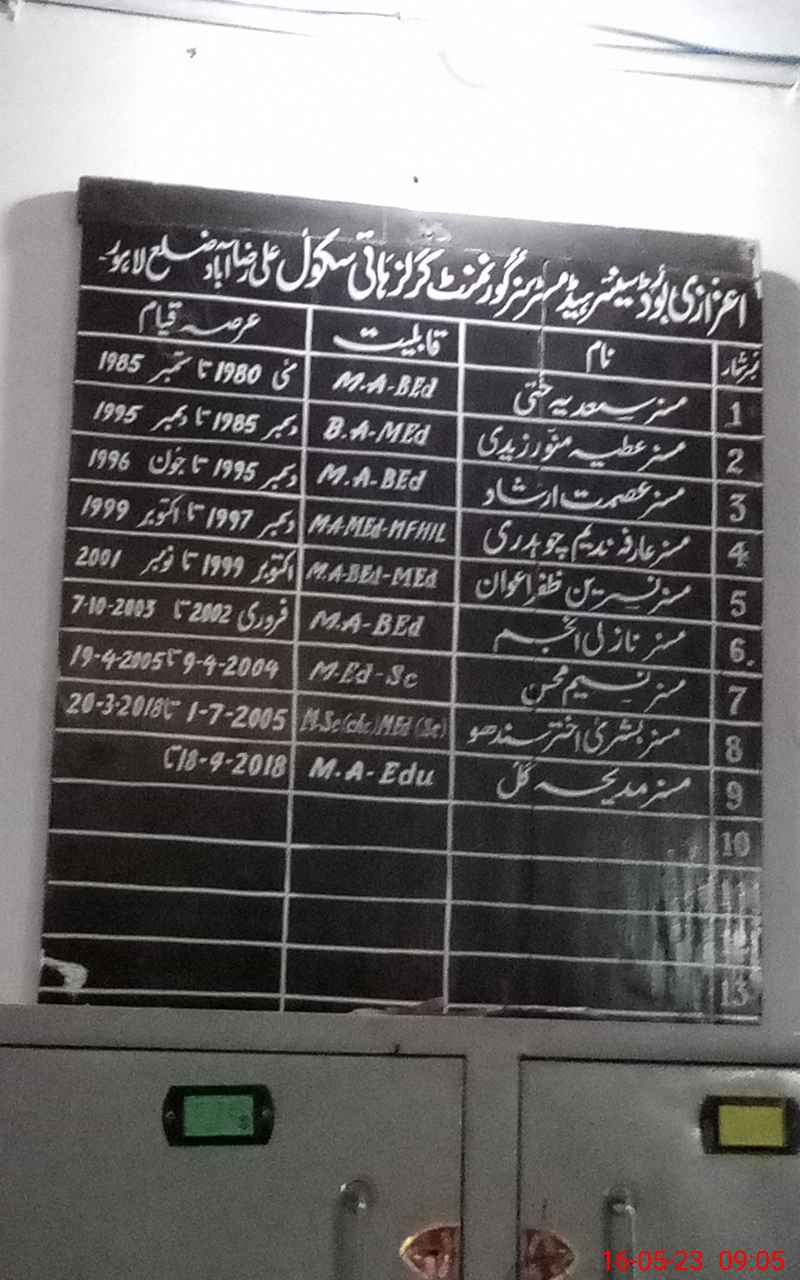 اعزازی بورڈ سینئر ہیڈ مسٹریسز گورنمنٹ گرلز ہائی سکول علی رضا آباد ضلع لاہور
نمبرشمار نام قابلیت عرصہ قیام
1 مسز سعدیہ M.A-BEd مئی 1980 تا ستمبر 1985
2 مسز عطیہ منور زیدی B.A-MEd دسمبر 1985 تا دسمبر 1995
3 مسز عصمت ارشاد M.A-BEd دسمبر 1995 تا جون 1996
4 مسز عارفہ ندیم چوہدری M.A-MEd-MFHIL دسمبر 1997 تا اکتوبر 1999
5 مسز نسرین ظفر اعوان M.A-BEd-MEd اکتوبر 1999 تا نومبر 2001
6. مسز نازلی انجم M.A-BEd فروری 2002 تا 7-10-2003
7 مسز نسیم محسن M-Ed-Sc 9-4-2004 تا 19-4-2005
8 مسز بشریٰ اختر سندھو M.Sc(che)MEd(Sc) 1-7-2005 تا 20-3-2018
9 مسز مدیحہ گل M.A-Edu 18-9-2018 تا
10
13
16-05-23 09:05